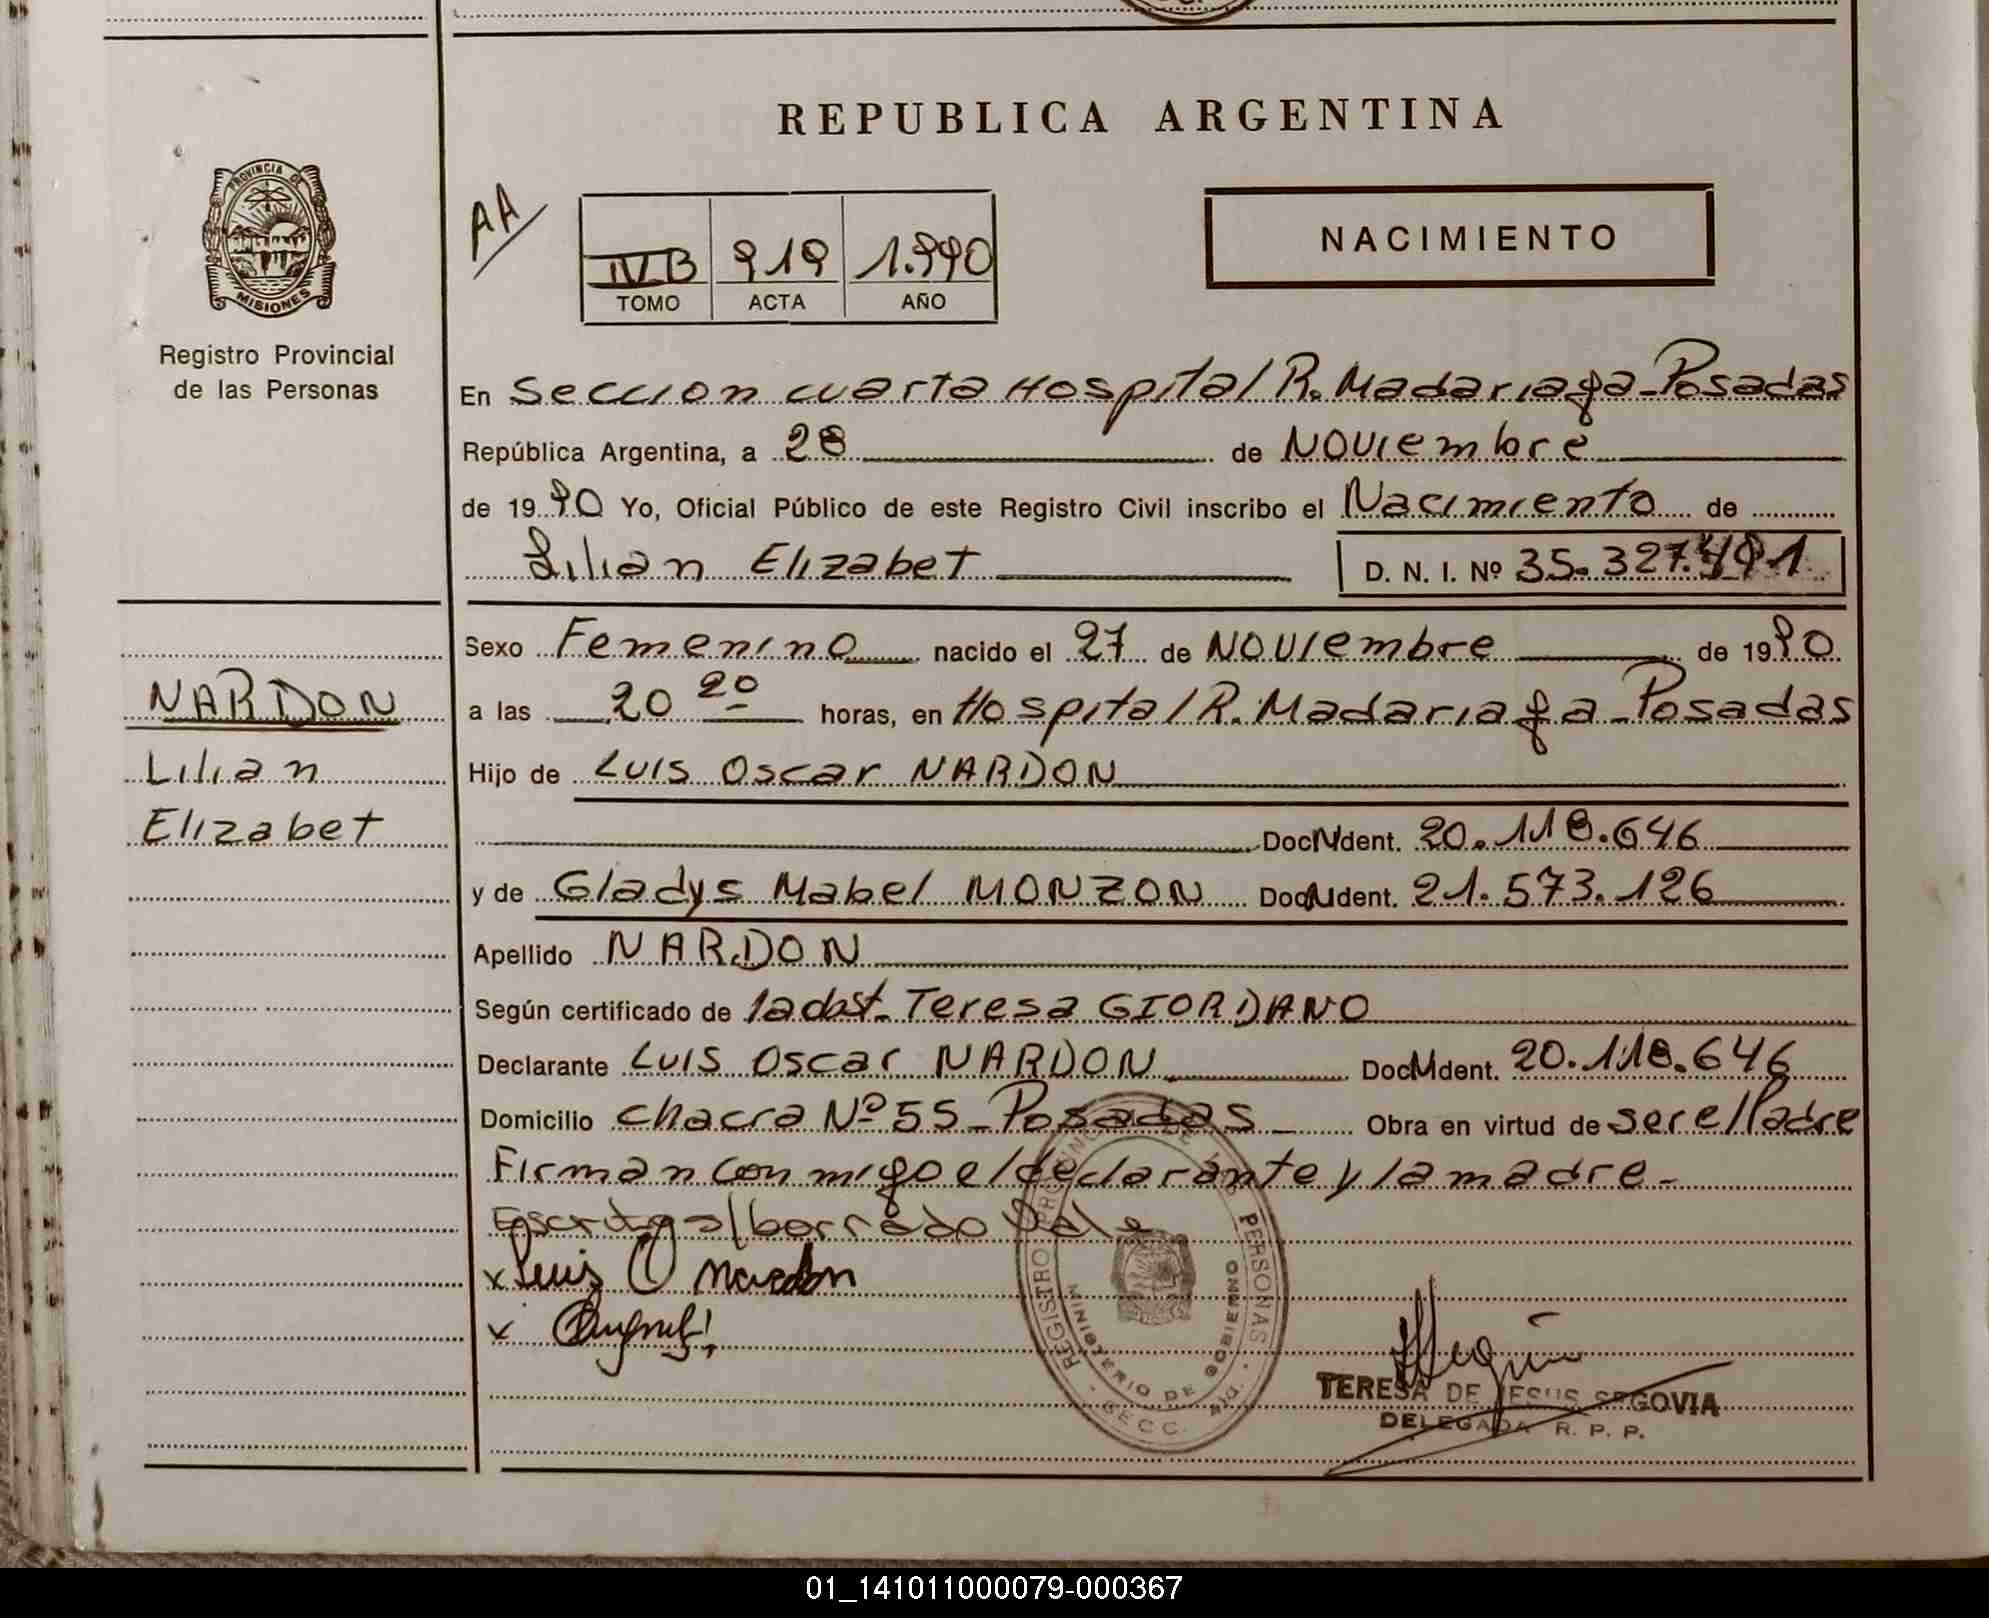 REPUBLICA ARGENTINA
PROVINCIA DE
MISIONES
Registro Provincial
de las Personas
AA
IV B 919 1.990
TOMO ACTA AÑO
NACIMIENTO
En Seccion cuarta Hospital R. Madariaga - Posadas
República Argentina, a 28 de NOViembre
de 1990 Yo, Oficial Público de este Registro Civil inscribo el Nacimiento de
Lilian Elizabet D. N. I. Nº 35.327.491
Sexo Femenino nacido el 27 de NOViembre de 1990
a las 20 20 horas, en Hospital R. Madariaga - Posadas
Hijo de Luis Oscar NARDON
Doc N Ident. 20.118.646
y de Gladys Mabel MONZON Doc N Ident. 21.573.126
Apellido NARDON
Según certificado de la obst. Teresa GIORDANO
Declarante Luis Oscar NARDON Doc N Ident. 20.118.646
Domicilio chacra Nº 55 - Posadas Obra en virtud de ser el Padre
Firman conmigo el declarante y la madre.
Escrito s/borrado Vale
x Luis O Nardon
x
NARDON
Lilian
Elizabet
REGISTRO PROVINCIAL DE LAS PERSONAS
MINISTERIO DE GOBIERNO
SECC. 4ta.
TERESA DE JESUS SEGOVIA
DELEGADA R. P. P.
01_141011000079-000367